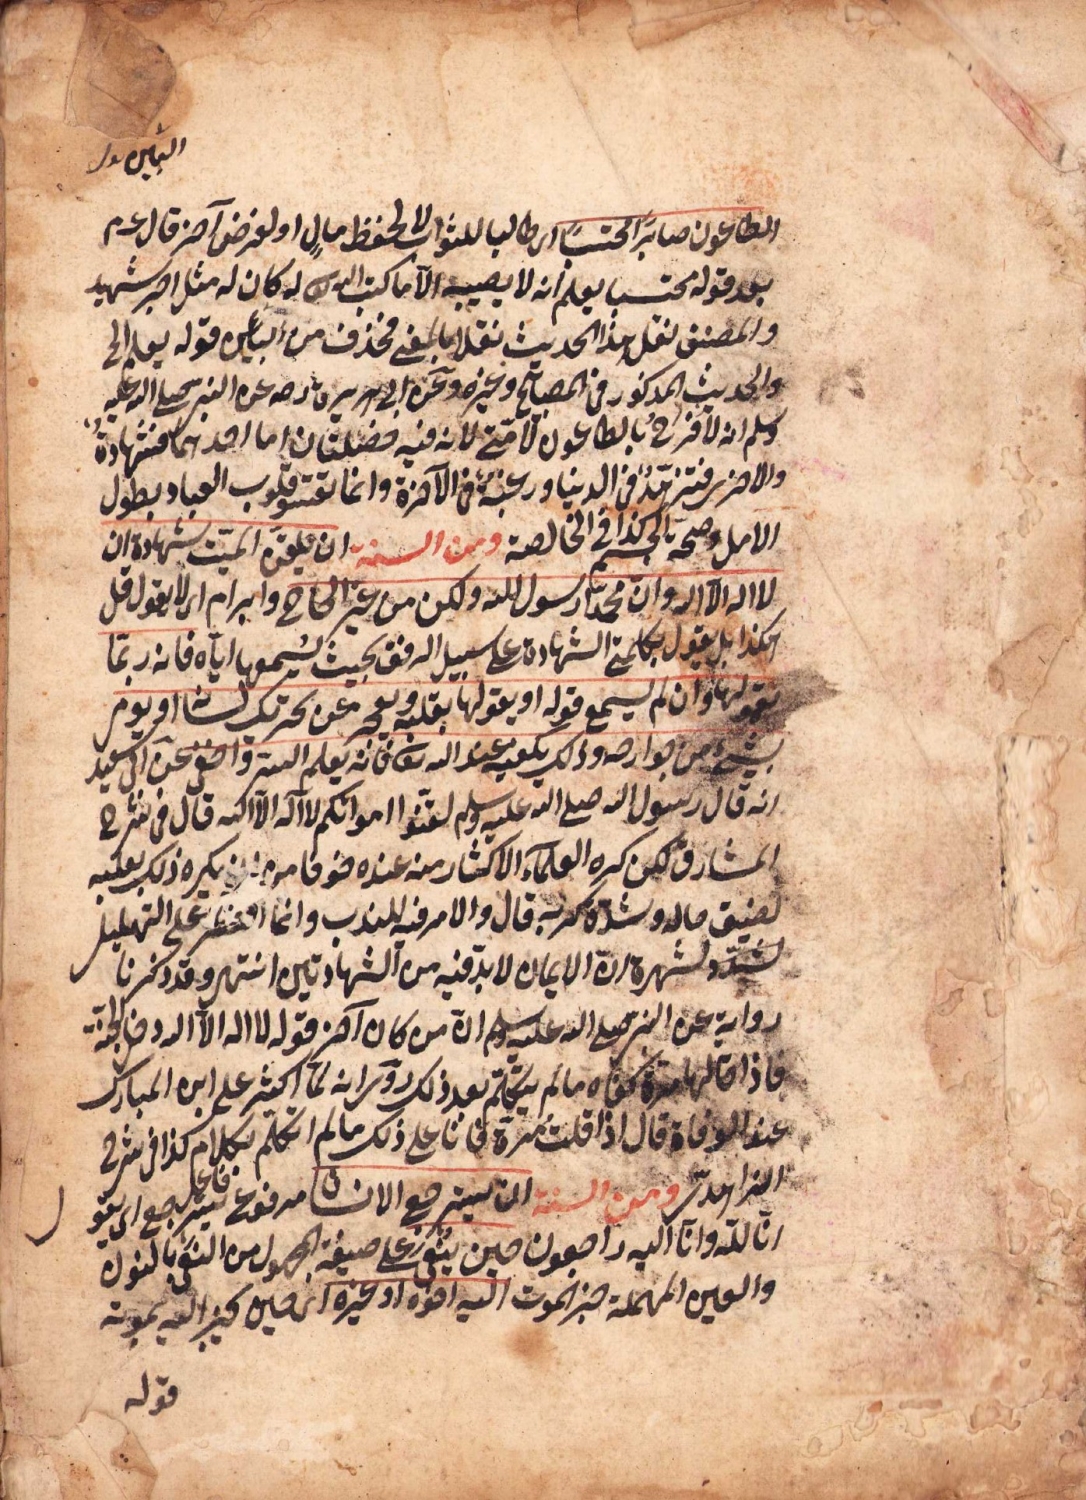 الطاعون صابرا محتسبا اي طالبا للثواب لا لحفظ مال او لغرض آخر قال عم
بعد قوله محتسبا يعلم أنه لا يصيبه الا ما كتب الله له كان له مثل اجر شهيد
والمصنف نقل هذا الحديث نقلا بالمعنى فحذف من البين قوله يعلم الى
والحديث المذكور في المصابيح وغيره وعن ابى هريرة رضه عن النبى صلى الله عليه
وسلم انه لا بالطاعون لامتى لانه فيه فضيلتان اما احدهما فشهادة
والاخرى فتزهد في الدنيا ورغبة في الآخرة وانما تقسو قلوب العباد بطول
الامل وصحة الجسم كذا في الخالصة ومن السنة ان يلقن الميت شهادة ان
لا اله الا الله وان محمدا رسول الله ولكن من غير الحاح وابرام اى لا يقول قل
هكذا بل يقول بكلمتى الشهادة على سبيل الرفق بحيث يسمعها اياه فانه ربما
يقولها وان لم يسمع قوله او يقولها بقلبه ويعجز عن تحريك لسانه او يومى
بشىء من جوارحه وذلك يكفيه عند الله تعا فانه يعلم السر واخفى عن ابى سعيد
انه قال رسول الله صلى الله عليه وسلم لقنوا امواتكم لا اله الا الله قال في شرح
المشارق لكن كره العلماء الاكثار منه عنده خوفا من ان يكره ذلك بقلبه
لضيق حاله وشدة كربه قال والامر فيه للندب وانما اقتصر على التهليل
لشهرة ان الايمان لا بد فيه من الشهادتين انتهى وقد ذكرنا
رواية عن النبى صلى الله عليه وسلم ان من كان آخر قوله لا اله الا الله دخل الجنة
فاذا قالها مرة كفاه ما لم يتكلم بعد ذلك روى انه لما اكثر على ابن المبارك
عند الوفاة قال اذا قلت مرة فانا على ذلك ما لم اتكلم بكلام كذا في شرح
الزاهدى ومن السنة ان يسترجع الانسان مرفوع فاعل يسترجع اى يقو
انا لله وانا اليه راجعون حين ينعى على صيغة المجهول من النعى بالنون
والعين المهملة خبر الموت اليه اخوه او غيره اى حين يخبر اليه بموته
قوله